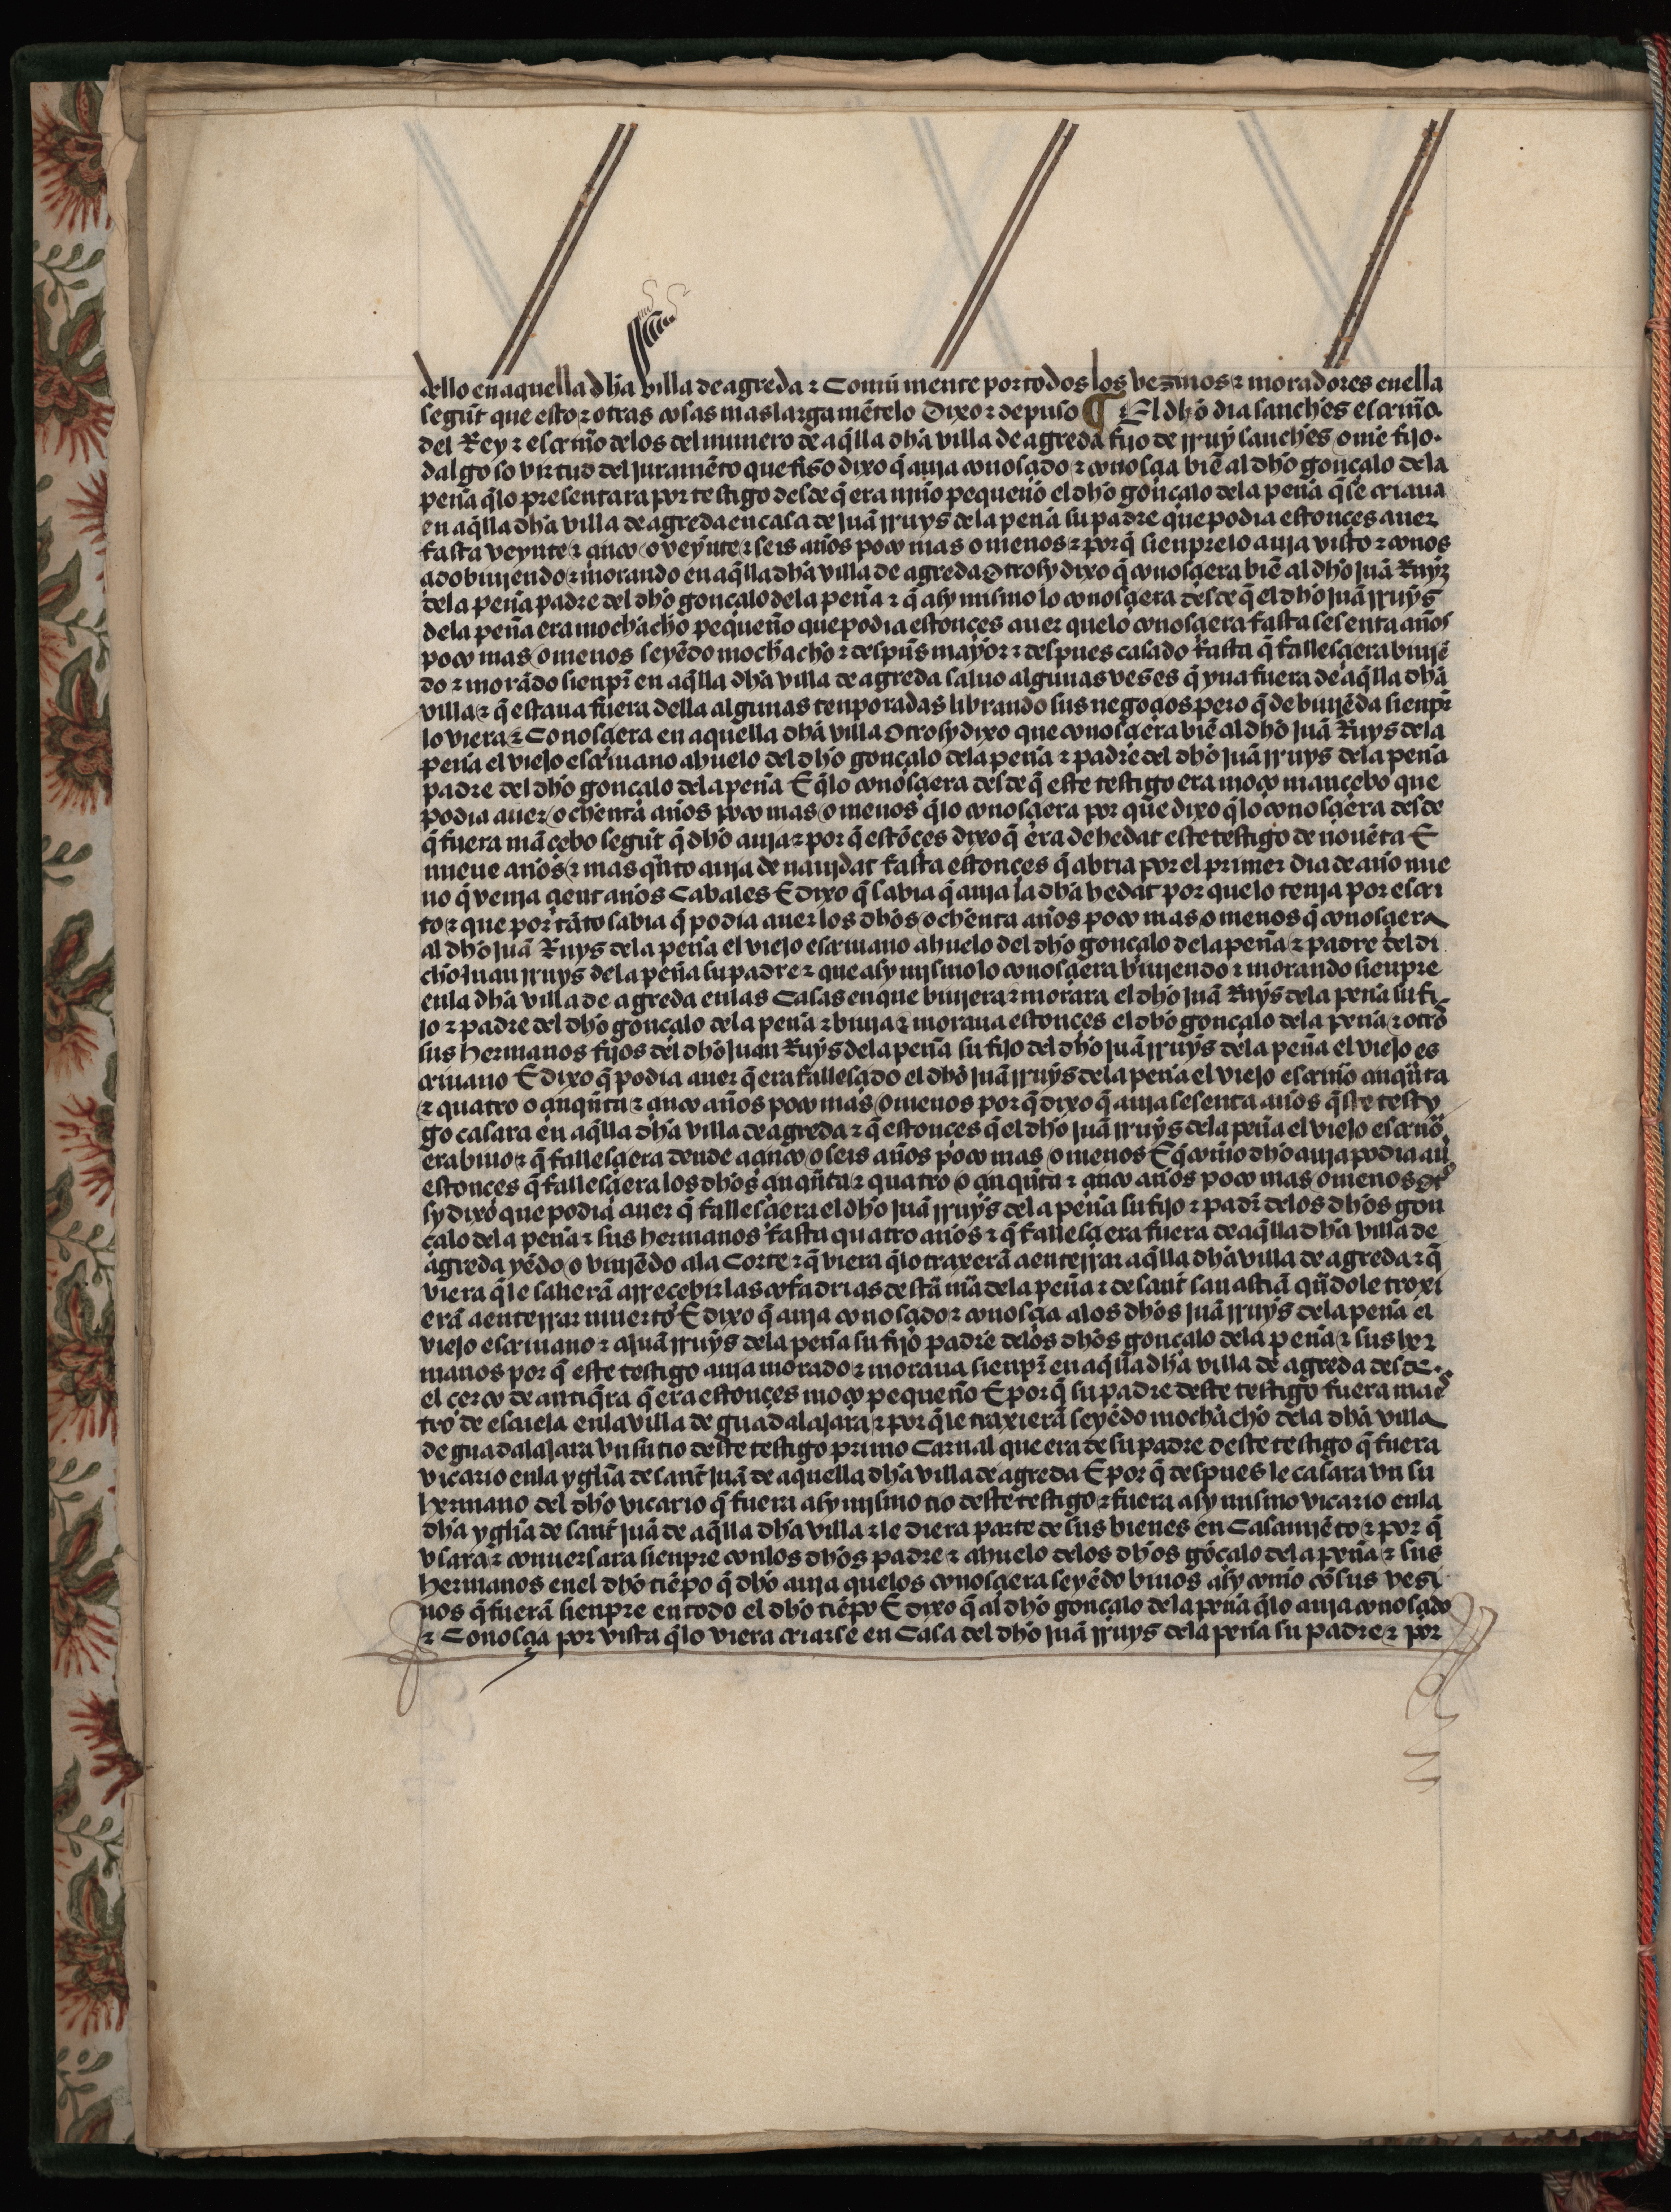 dello en aquella dha villa de agreda ⁊ Comũ mente por todos los vezinos ⁊ moradores en ella
segũt que esto ⁊ otras cosas mas larga mẽte lo Dixo ⁊ depuso ¶ El dho dia sanches escriuº.
del Rey ⁊ escriuº de los del numero de aq̃lla dha villa de agreda fijo de rruy sanches ome fijo.
dalgo so virtud del juramẽto que fiso dixo q̃ auja conosçido ⁊ conosçia biẽ al dho gonçalo dela
peña q̃lo presentara por testigo desde q̃ era njño pequeño el dho gonçalo dela peña q̃ se criaua
en aq̃lla dha villa de agreda en casa de juã rruys dela peña su padre que podia estonces auer
fasta veynte ⁊ çinco o veynte ⁊ seis años poco mas o menos ⁊ por q̃ sienpre lo auja visto ⁊ conos
çido biujendo ⁊ morando en aq̃lla dha villa de agreda Otrosy dixo q̃ conosçiera biẽ al dho juã Ruyz
dela peña padre del dho gonçalo dela peña ⁊ q̃ asy mismo lo conosçiera desde q̃ el dho juã rruys
dela peña era mochacho pequeño que podia estonces auer quelo conosçiera fasta sesenta años
poco mas o menos seyẽdo mochacho ⁊ despũs mayor ⁊ despues casado fasta q̃ fallesçiera biujẽ
do ⁊ morãdo sienpr̃ en aq̃lla dha villa de agreda saluo algunas veses q̃ yua fuera de aq̃lla dha
villa ⁊ q̃ estaua fuera della algunas tenporadas librando sus negoçios pero q̃ de biujẽda sienpr̃
lo viera ⁊ Conosçiera en aquella dha villa Otrosy dixo que conosçiera biẽ al dho juã Ruys dela
peña el viejo escriuano ahuelo del dho gonçalo dela peña ⁊ padre del dho juã rruys dela peña
padre del dho gonçalo dela peña E q̃lo conosçiera desde q̃ este testigo era moço mancebo que
podia auer ochenta años poco mas o menos q̃lo conosçiera por que dixo q̃lo conosçiera desde
q̃ fuera mãçebo segũt q̃ dho auja ⁊ por q̃ estõces dixo q̃ era de hedat este testigo de nouẽta E
nueue años ⁊ mas q̃nto auja de naujdat fasta estonces q̃ abria por el primer dia de año nue
uo q̃ venja çient años Cabales E dixo q̃ sabia q̃ auja la dha hedat por quelo tenja por escri
to ⁊ que por tãto sabia q̃ podia auer los dhos ochenta años poco mas o menos q̃ conosçiera
al dho juã Ruys dela peña el viejo escriuano ahuelo del dho gonçalo dela peña ⁊ padre del di
cho juan rruys dela peña su padre ⁊ que asy mjsmo lo conosçiera biujendo ⁊ morando sienpre
enla dha villa de agreda enlas Casas en que biujera ⁊ morara el dho juã Ruys dela peña su fi
jo ⁊ padre del dho gonçalo dela peña ⁊ biuja ⁊ moraua estonces el dho gonçalo dela peña ⁊ otros
sus hermanos fijos del dho juan Ruys dela peña su fijo del dho juã rruys dela peña el viejo es
criuano E dixo q̃ podia auer q̃ era fallesçido el dho juã rruys dela peña el viejo escriuº çinqũta
⁊ quatro o çinqũta ⁊ çinco años poco mas o menos por q̃ dixo q̃ auja sesenta años q̃ste testy
go casara en aq̃lla dha villa de agreda ⁊ q̃ estonces q̃ el dho juã rruys dela peña el viejo escriuº
era biuo ⁊ q̃ fallesçiera dende a çinco o seis años poco mas o menos E q̃ como dho auja podia au
estonces q̃ fallesçiera los dhos çinqũta ⁊ quatro o çinqũta ⁊ çinco años poco mas o menos Otº
sy dixo que podia auer q̃ fallesçiera el dho juã rruys dela peña su fijo ⁊ padr̃ delos dhos gon
çalo dela peña ⁊ sus hermanos fasta quatro años ⁊ q̃ fallesçiera fuera de aq̃lla dha villa de
agreda yẽdo o vinjẽdo ala Corte ⁊ q̃ viera q̃lo traxerã a enterrar aq̃lla dha villa de agreda ⁊ q̃
viera q̃le salierã arrecebir las cofadrias de stã mã dela peña ⁊ de sant sauastiã qũdole troxi
erã a enterrar muerto E dixo q̃ auja conosçido ⁊ conosçia alos dhos juã rruys dela peña el
viejo escriuano ⁊ a juã rruys dela peña su fijo padre delos dhos gonçalo dela peña ⁊ sus her
manos por q̃ este testigo auja morado ⁊ moraua sienpr̃ en aq̃lla dha villa de agreda desde.
el çerco de antiq̃ra q̃ era estonçes moço pequeño E por q̃ su padre deste testigo fuera maes
tro de escuela enla villa de guadalajara ⁊ por q̃le traxierã seyẽdo mochacho dela dha villa
de guadalajara vn su tio deste testigo primo Carnal que era de su padre deste testigo q̃ fuera
vicario enla yglia de sant juã de aquella dha villa de agreda E por q̃ despues le casara vn su
hermano del dho vicario q̃ fuera asy mjsmo tio deste testigo ⁊ fuera asy mismo vicario enla
dha yglia de sant juã de aq̃lla dha villa ⁊ le diera parte de sus bienes en Casamjẽto ⁊ por q̃
vsara ⁊ conuersara sienpre conlos dhos padre ⁊ ahuelo delos dhos gõçalo dela peña ⁊ sus
hermanos enel dho tiẽpo q̃ dho auja quelos conosçiera seyẽdo biuos asy como cõ sus vesi
nos q̃ fuerã sienpre en todo el dho tiẽpo E dixo q̃ al dho gonçalo dela peña q̃lo auja conosçido
⁊ Conosçia por vista q̃lo viera criarse en Casa del dho juã rruys dela peña su padre ⁊ por